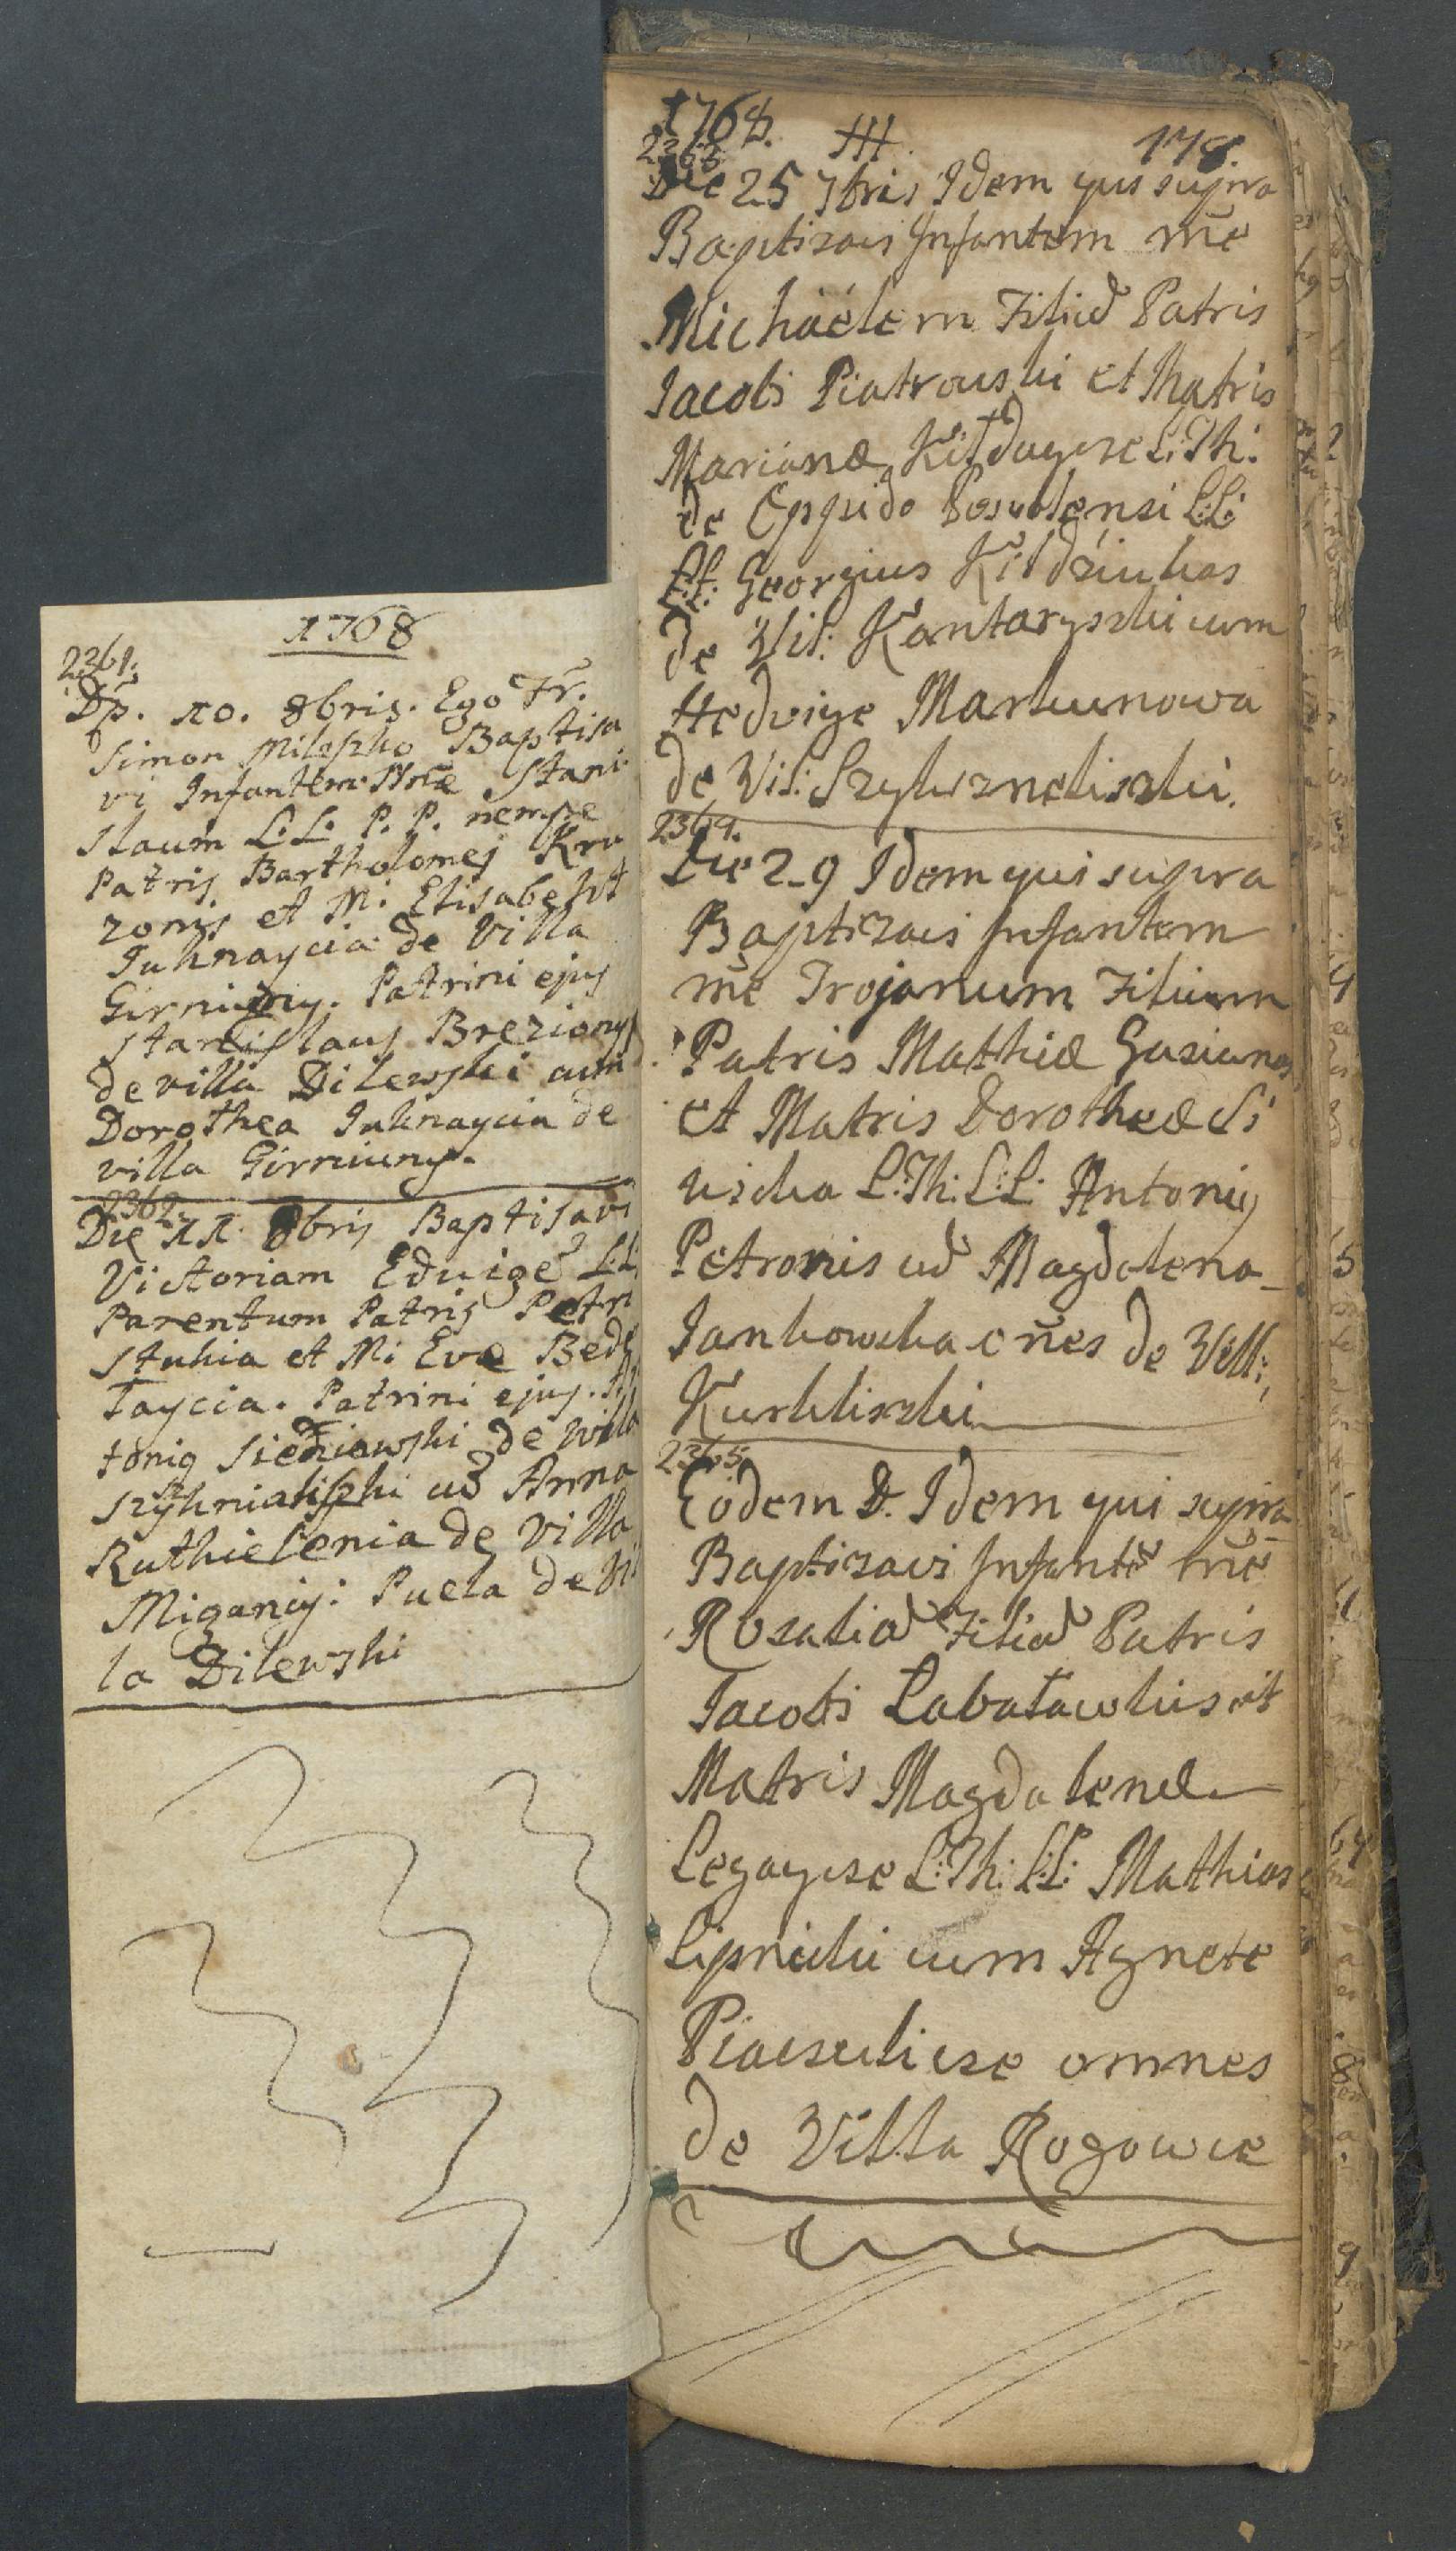 1768
2361.
Dẽ. 10. 8bris. Ego Fr.
Simon Mileszko Baptisa
vi Infantem Nñe Stani
slaum L. L. P. P. nempe
Patris Bartholomej Kru
zonis et M: Elisabeht
Juknaycia de Villa
Girniuny. Patrini ejus
Stanislaus Brezionys
de villa Dilewski cum
Dorothea Juknaycia de
villa Girniuny.
2362.
Die 11. 8bris Baptisavi
Victoriam Eduigẽ L:L:
Parentum Patris Petri
Stukia et M: Evæ
Taycia. Patrini ejus.
tonig Siedziewski de villa
Szyknialiszki cũ Anna
Ruthielenia de Villa
Miganiy: Puela de Vil
la Dilewski
1768. 178.
2363
Die 25 7bris Idem qui supra
Baptizavi Infantem ñne
Michaelem Filiũ Patris
Jacobi Piatrouski et Matris
Marianæ Kildaycze L: Th:
de Oppido Poswolensi L:L:
Georgius Kildziukas
de Vil: Kantaryszki cum
Hedvige Markunowa
de Vil: Szykszneliszki.
2364.
Die 29 Idem qui supra
Baptizavi Infantem
ñne Trojanum Filium
Patris Mathiæ Gasiunas
et Matris Dorotheæ Li
uscka L: Th: L:L: Antonis
Petronis cũ Magdalena
Jankowska oñes de Vill:
Kurkliszki
2365.
Eodem D. Idem qui supra
Baptizavi Infantẽ ñne
Rosaliã Filiã Patris
Jacobi Labatawlius et
Matris Magdalenæ
Legaycze L: Th: L:L: Mathias
Lipnicki cum Agnete
Piaculicze omnes
de Villa Rogowie